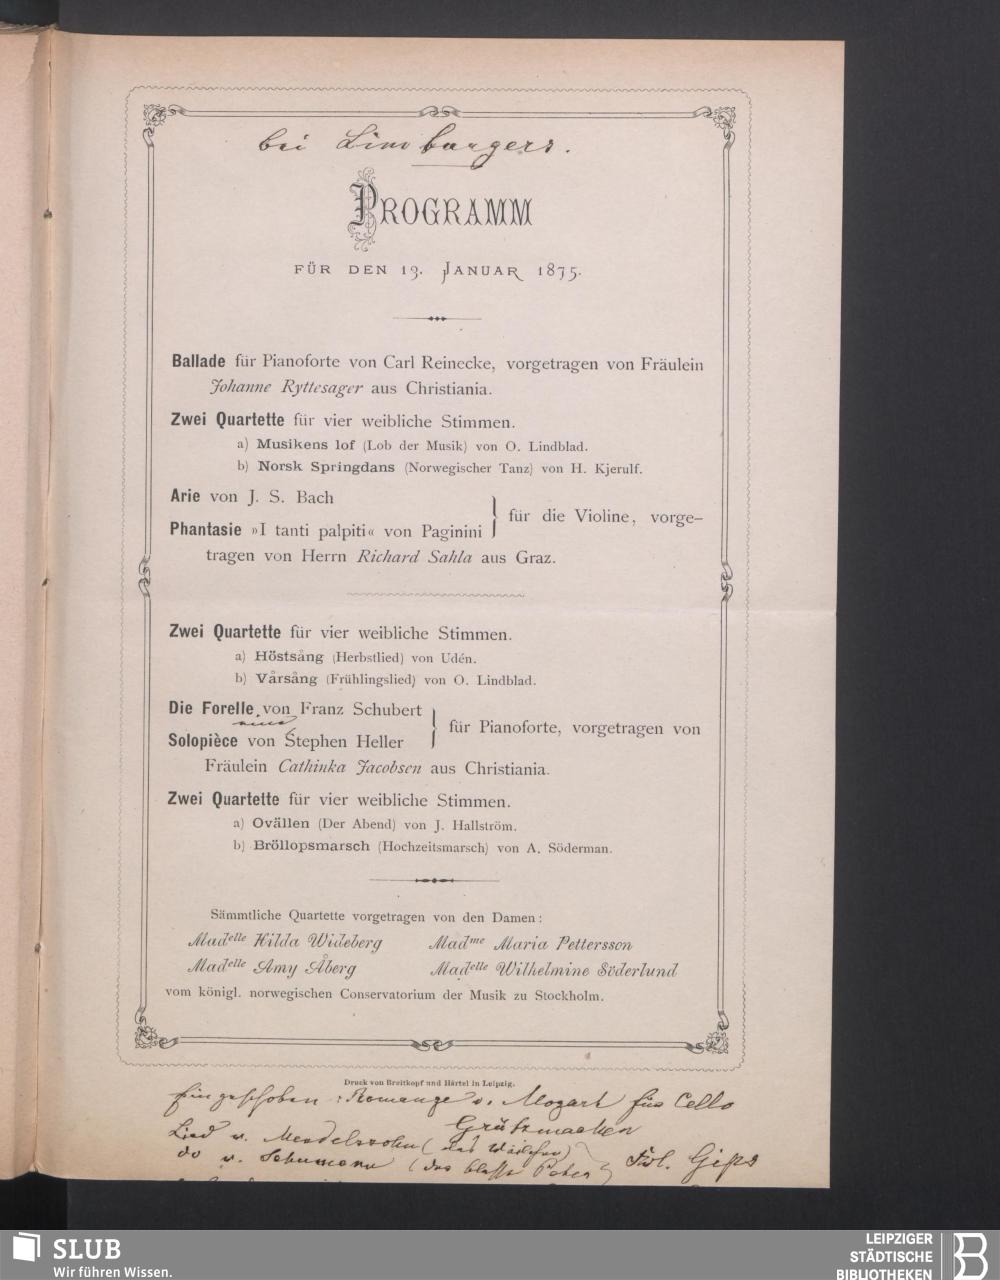 bei Limburgers.
PROGRAMM
FÜR DEN 13. JANUAR 1875.
Ballade für Pianoforte von Carl Reinecke, vorgetragen von Fräulein
Johanne Ryttesager aus Christiania.
Zwei Quartette für vier weibliche Stimmen.
a) Musikens lof (Lob der Musik) von O. Lindblad.
b) Norsk Springdans (Norwegischer Tanz) von H. Kjerulf.
Arie von J. S. Bach
Phantasie »I tanti palpiti« von Paginini } für die Violine, vorge-
tragen von Herrn Richard Sahla aus Graz.
Zwei Quartette für vier weibliche Stimmen.
a) Höstsång (Herbstlied) von Udén.
b) Vårsång (Frühlingslied) von O. Lindblad.
Die Forelle von Franz Schubert
Solopièce von Stephen Heller } für Pianoforte, vorgetragen von
Fräulein Cathinka Jacobsen aus Christiania.
Zwei Quartette für vier weibliche Stimmen.
a) Ovällen (Der Abend) von J. Hallström.
b) Bröllopsmarsch (Hochzeitsmarsch) von A. Söderman.
Sämmtliche Quartette vorgetragen von den Damen:
Madelle Hilda Wideberg Madme Maria Pettersson
Madelle Amy Åberg Madelle Wilhelmine Söderlund
vom königl. norwegischen Conservatorium der Musik zu Stockholm.
Druck von Breitkopf und Härtel in Leipzig.
Eingeschoben: Romanze v. Mozart für Cello
Grützmacher
Lied v. Mendelssohn (das
do v. Schumann (der blasse Peter) Frl.
SLUB
Wir führen Wissen.
LEIPZIGER
STÄDTISCHE
BIBLIOTHEKEN